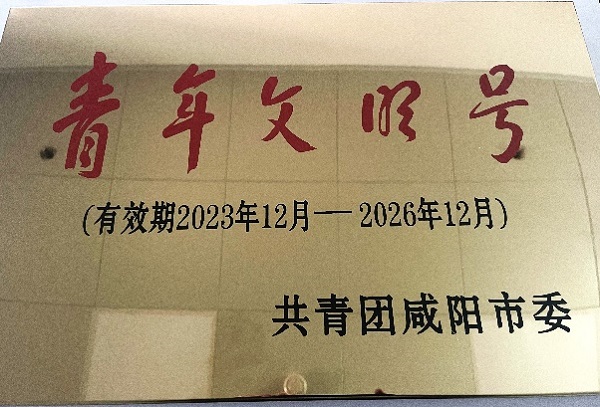 青年文明号
(有效期2023年12月——2026年12月)
共青团咸阳市委